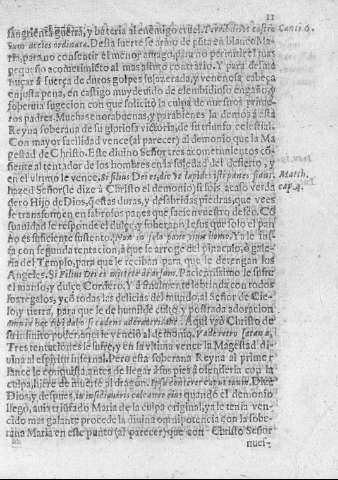 11
sangrienta guerra, y bateria al enemigo cruel. Terribilis ut castro Cant. 6.
rum acies ordinata. Desta suerte se armò de punta en blanco Ma-
ria, para no consentir el menor amago, para no permitir el mas
pequeño acometimiẽto al mas astuto contrario. Y para derri-
car à fuerza de duros golpes su azerada, y venenosa cabeça
en justa pena, en castigo muy devido de el embidioso engaño, y
sobervia sugecion con que solicitò la culpa de nuestros prime-
ros padres. Muchas enorabuenas, y parabienes la demos à esta
Reyna soberana de su gloriosa victoria, de su triunfo celestial.
Con mayor facilidad vence (al parecer) al demonio que la Ma-
gestad de Christo. Este divino Señor tres acometimientos cõ-
siente al tentador de los hombres en la soledad del desierto, y
en el vltimo le vence. Si filius Dei es, dic vt lapides isti panes fiant. Matth.
hazed Señor (le dize à Christo el demonio) si sois acaso verda cap. 4.
dero Hijo de Dios, questas duras, y desabridas piedras, que vees
se transformẽ en sabrosos panes, que sacie nuestro deseo. Cõ
suavidad le responde el dulce, y soberano Jesus que solo el pan
no es suficiente sustento. Non in solo pane vivit homo. Ya le insta
con segunda tentacion, à que se arroge del pinaculo, ò gale-
ria del Templo, para que le reciban para que le detengan los
Angeles. Si Filius Dei es mitte te deorsum. Pacientissimo le sufre
el manso, y dulce Cordero. Y à finalmẽte le brinda con todos
los regalos, y cõ todas las delicias del mundo, al Señor de Cie-
lo, y tierra, para que le de humilde culto, y postrada adoracion
omnia hæc tibi dabo si cadens adoraveris me. Aqui ya Christo de
tri infinito poderanque le venciò al demonio. Vade retro satana,
Tres tentaciones le sufre, y en la vltima vence la Magestad di-
vina al espiritu infernal. Pero esta soberana Reyna al primer
lance le conquista antes de llegar à sus pies à ofenderla con la
culpa, hiere de muerte al dragon. Ipsa conteret caput tuum. Dize
Dios, y despues, tu insidiaveris calcaneo eius quando el demonio
llegò, avia triũfado Maria de la culpa original, ya le tenia ven-
cido mas galante procede la divina omnipotencia con la sobe-
rana Maria en este punto (al parecer) que con Christo Señor
nues-